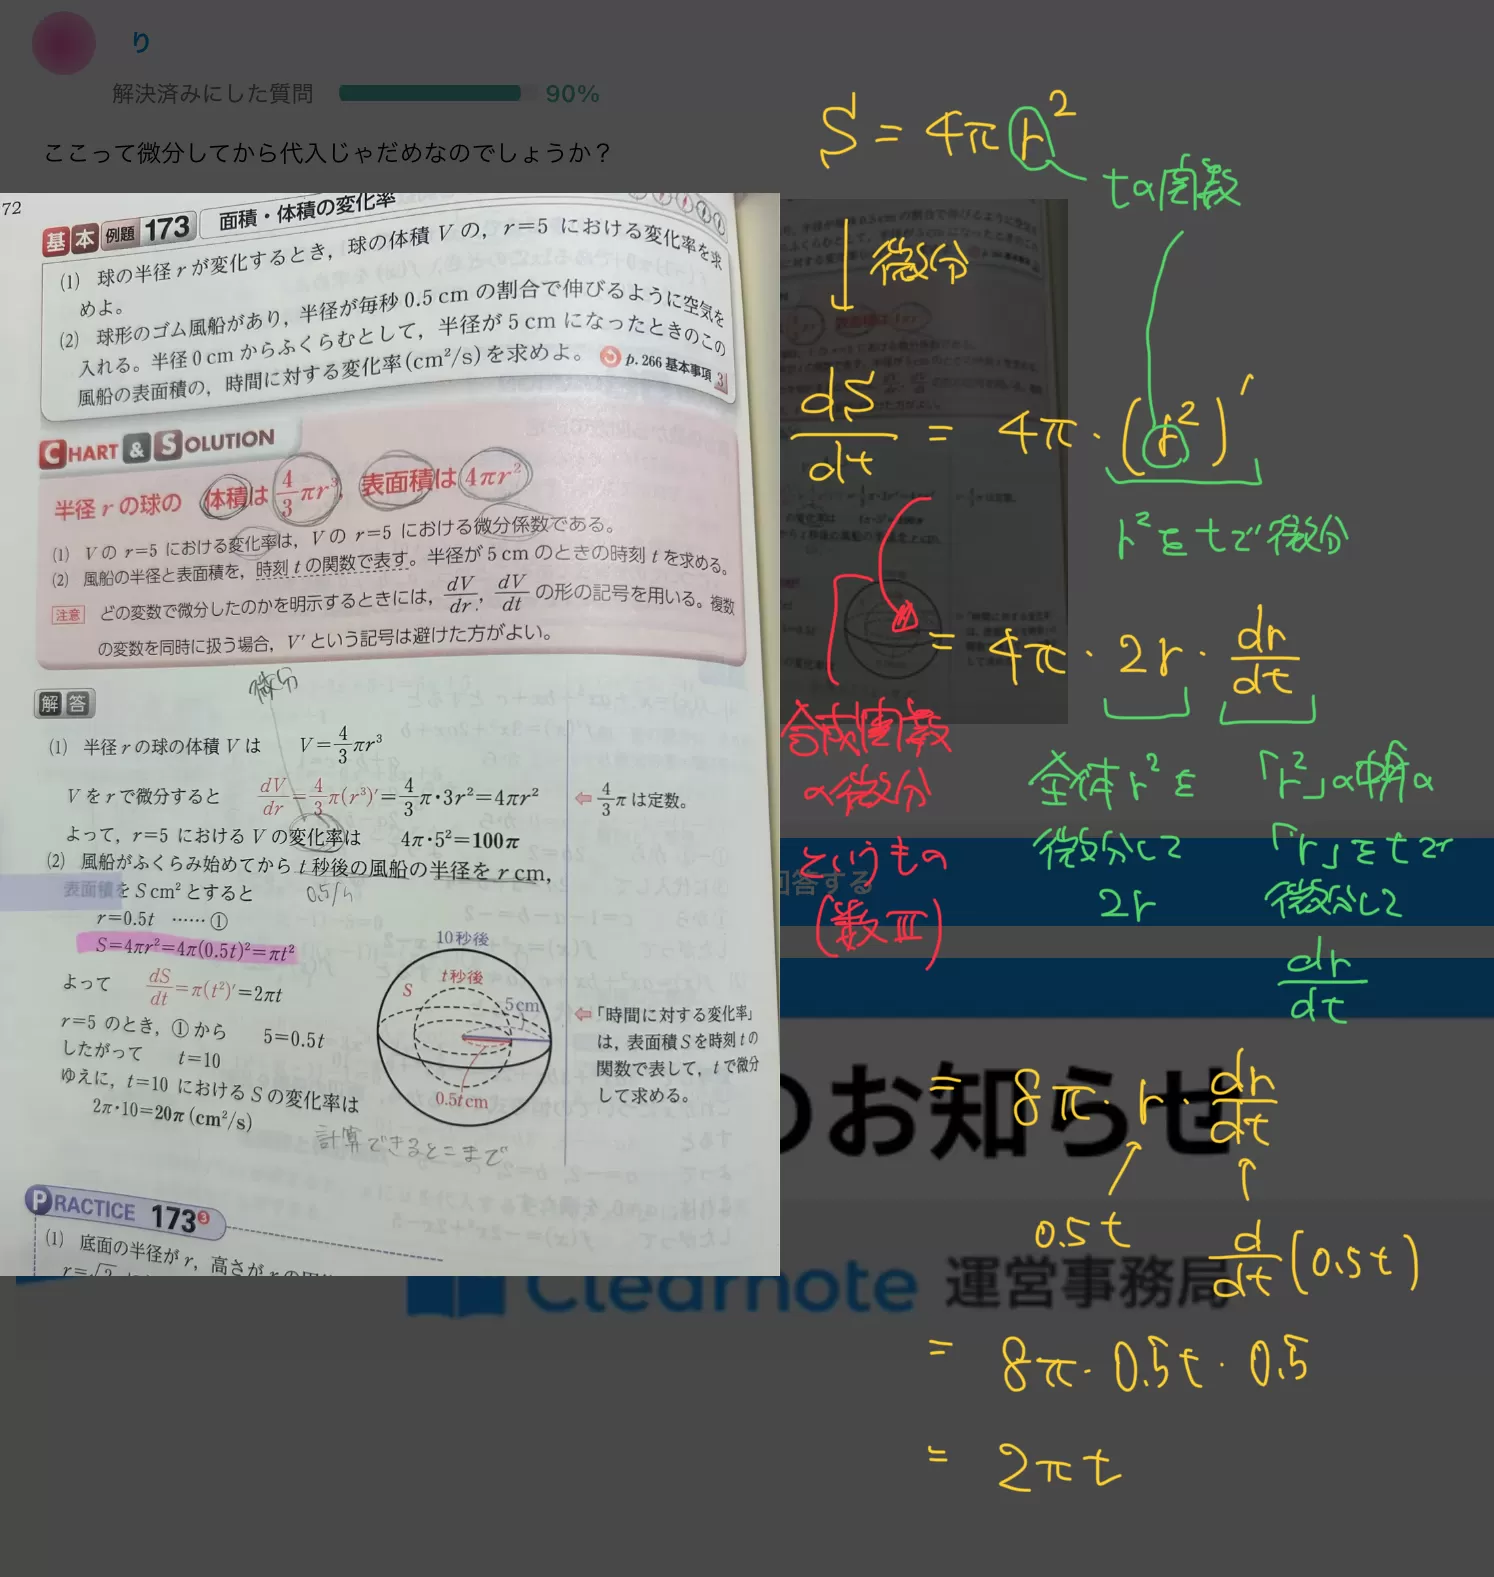 り
解決済みにした質問 90%
ここって微分してから代入じゃだめなのでしょうか？
72
基本 例題 173 面積・体積の変化率
(1) 球の半径 r が変化するとき，球の体積 V の，r=5 における変化率を求
めよ。
(2) 球形のゴム風船があり，半径が毎秒 0.5 cm の割合で伸びるように空気を
入れる。半径 0 cm からふくらむとして，半径が 5 cm になったときのこの
風船の表面積の，時間に対する変化率(cm²/s)を求めよ。
p.266 基本事項 3
CHART & SOLUTION
半径 r の球の 体積は 4/3 πr³，表面積は 4πr²
(1) V の r=5 における変化率は，V の r=5 における微分係数である。
(2) 風船の半径と表面積を，時刻 t の関数で表す。半径が 5 cm のときの時刻 t を求める。
注意 どの変数で微分したのかを明示するときには，dV/dr，dV/dt の形の記号を用いる。複数
の変数を同時に扱う場合，V′ という記号は避けた方がよい。
微分
解答
(1) 半径 r の球の体積 V は V=4/3 πr³
V を r で微分すると dV/dr=4/3 π(r³)′=4/3 π・3r²=4πr²
⇦ 4/3 π は定数。
よって，r=5 における V の変化率は 4π・5²=100π
(2) 風船がふくらみ始めてから t 秒後の風船の半径を r cm，
表面積を S cm² とすると
r=0.5t ……①
S=4πr²=4π(0.5t)²=πt²
よって dS/dt=π(t²)′=2πt
r=5 のとき，①から 5=0.5t
したがって t=10
ゆえに，t=10 における S の変化率は
2π・10=20π (cm²/s)
計算できるとこまで
10秒後
t秒後
S
5cm
0.5t cm
⇦「時間に対する変化率」
は，表面積 S を時刻 t の
関数で表して，t で微分
して求める。
PRACTICE 173③
(1) 底面の半径が r，高さが r の円
S = 4πr²
tの関数
微分
dS/dt = 4π・(r²)′
r²をtで微分
= 4π・2r・dr/dt
合成関数
の微分
というもの
(数Ⅲ)
全体r²を
微分して
2r
「r²」の中身の
「r」をtで
微分して
dr/dt
= 8π・r・dr/dt
0.5t
d/dt(0.5t)
= 8π・0.5t・0.5
= 2πt
回答する
のお知らせ
Clearnote 運営事務局